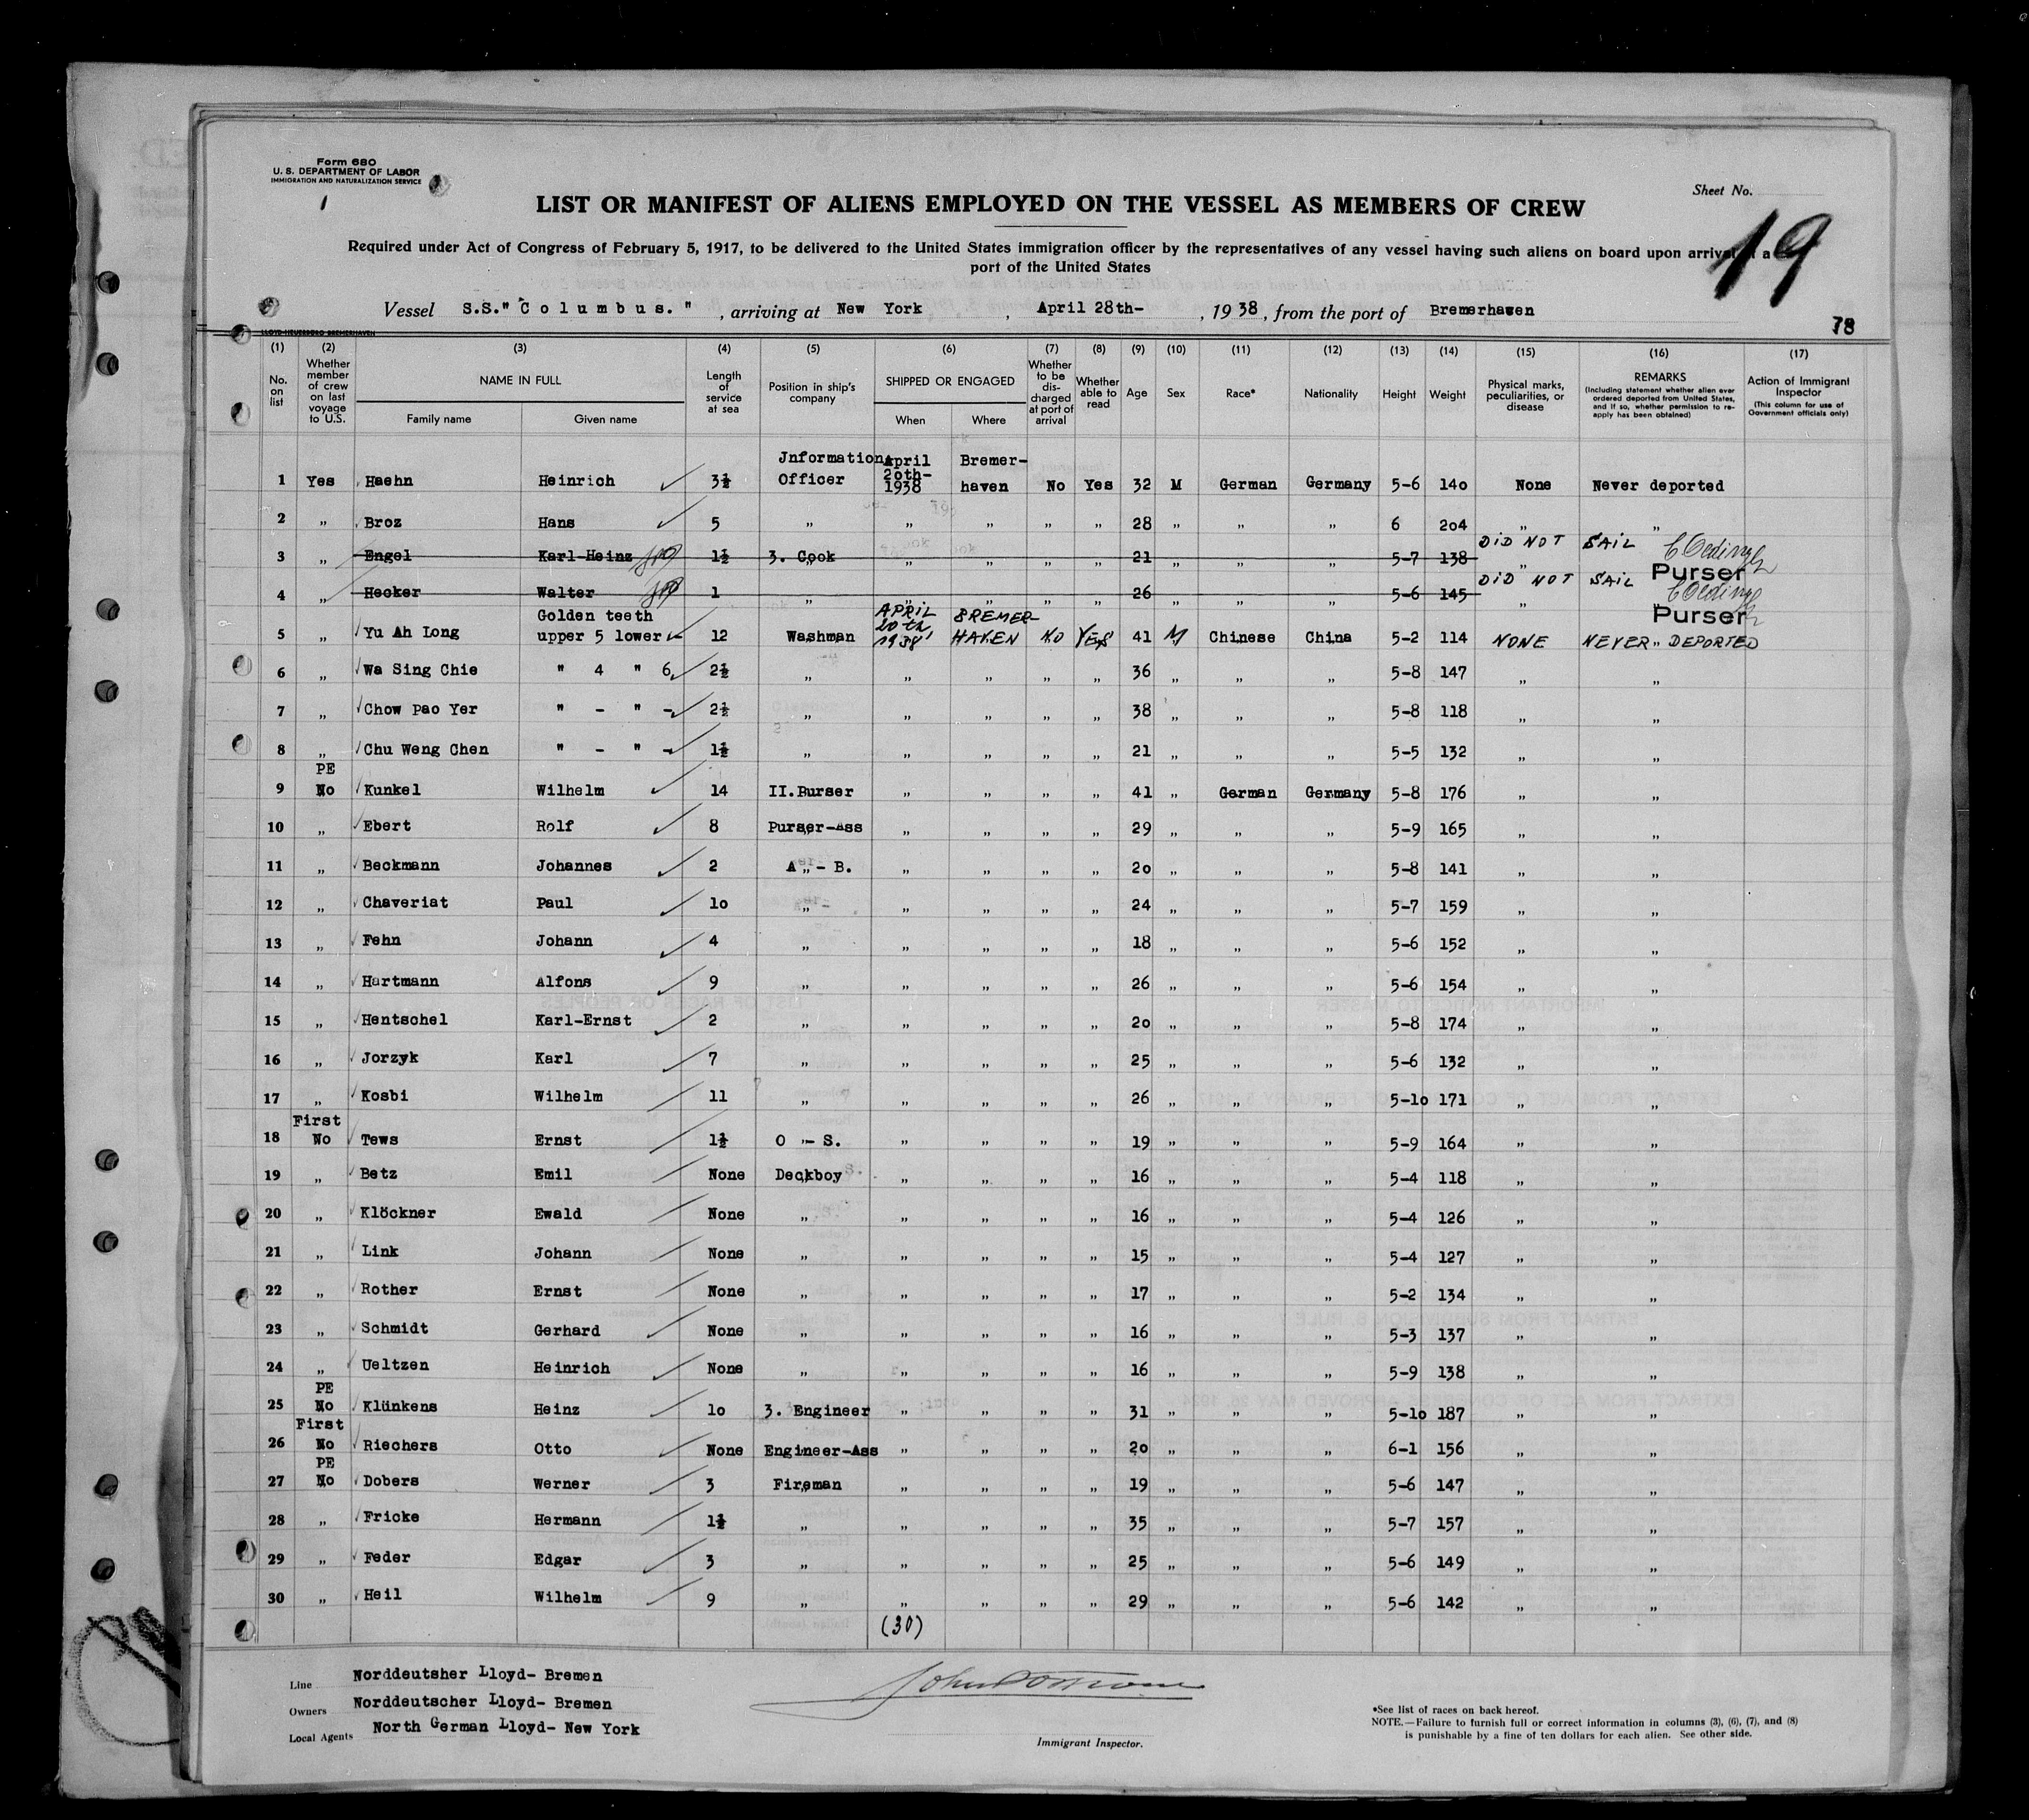 Form 680
U. S. DEPARTMENT OF LABOR
IMMIGRATION AND NATURALIZATION SERVICE
1
Sheet No.
19
LIST OR MANIFEST OF ALIENS EMPLOYED ON THE VESSEL AS MEMBERS OF CREW
Required under Act of Congress of February 5, 1917, to be delivered to the United States immigration officer by the representatives of any vessel having such aliens on board upon arrival at a
port of the United States
Vessel S.S." C o l u m b u s. " , arriving at New York , April 28th- , 19 38 , from the port of Bremerhaven
78
LLOYD-HEUSSBERG BREMERHAVEN
(1) No. on list (2) Whether member of crew on last voyage to U.S. (3) NAME IN FULL Family name Given name (4) Length of service at sea (5) Position in ship's company (6) SHIPPED OR ENGAGED When Where (7) Whether to be discharged at port of arrival (8) Whether able to read (9) Age (10) Sex (11) Race* (12) Nationality (13) Height (14) Weight (15) Physical marks, peculiarities, or disease (16) REMARKS (Including statement whether alien ever ordered deported from United States, and if so, whether permission to reapply has been obtained) (17) Action of Immigrant Inspector (This column for use of Government officials only)
1 Yes Haehn Heinrich 3½ Jnformation Officer April 20th- 1938 Bremer- haven No Yes 32 M German Germany 5-6 14o None Never deported
2 „ Broz Hans 5 „ „ „ „ „ 28 „ „ „ 6 2o4 „ „
3 „ Engel Karl-Heinz 1½ 3. Cook „ „ „ „ 21 „ „ „ 5-7 138 „ DID NOT SAIL Purser
4 „ Hecker Walter 1 „ „ „ „ „ 26 „ „ „ 5-6 145 „ DID NOT SAIL Purser
5 „ Yu Ah Long Golden teeth upper 5 lower - 12 Washman APRIL 20th 1938 BREMER- HAVEN NO YES 41 M Chinese China 5-2 114 NONE NEVER DEPORTED
6 „ Wa Sing Chie " 4 " 6 2½ „ „ „ „ „ 36 „ „ „ 5-8 147 „ „
7 „ Chow Pao Yer " - " - 2½ „ „ „ „ „ 38 „ „ „ 5-8 118 „ „
8 „ Chu Weng Chen " - " - 1½ „ „ „ „ „ 21 „ „ „ 5-5 132 „ „
9 PE No Kunkel Wilhelm 14 II.Purser „ „ „ „ 41 „ German Germany 5-8 176 „ „
10 „ Ebert Rolf 8 Purser-Ass „ „ „ „ 29 „ „ „ 5-9 165 „ „
11 „ Beckmann Johannes 2 A „- B. „ „ „ „ 2o „ „ „ 5-8 141 „ „
12 „ Chaveriat Paul 1o „ „ „ „ „ 24 „ „ „ 5-7 159 „ „
13 „ Fehn Johann 4 „ „ „ „ „ 18 „ „ „ 5-6 152 „ „
14 „ Hartmann Alfons 9 „ „ „ „ „ 26 „ „ „ 5-6 154 „ „
15 „ Hentschel Karl-Ernst 2 „ „ „ „ „ 2o „ „ „ 5-8 174 „ „
16 „ Jorzyk Karl 7 „ „ „ „ „ 25 „ „ „ 5-6 132 „ „
17 „ Kosbi Wilhelm 11 „ „ „ „ „ 26 „ „ „ 5-1o 171 „ „
18 First No Tews Ernst 1½ O „- S. „ „ „ „ 19 „ „ „ 5-9 164 „ „
19 „ Betz Emil None Deckboy „ „ „ „ 16 „ „ „ 5-4 118 „ „
20 „ Klöckner Ewald None „ „ „ „ „ 16 „ „ „ 5-4 126 „ „
21 „ Link Johann None „ „ „ „ „ 15 „ „ „ 5-4 127 „ „
22 „ Rother Ernst None „ „ „ „ „ 17 „ „ „ 5-2 134 „ „
23 „ Schmidt Gerhard None „ „ „ „ „ 16 „ „ „ 5-3 137 „ „
24 „ Ueltzen Heinrich None „ „ „ „ „ 16 „ „ „ 5-9 138 „ „
25 PE No Klünkens Heinz 1o 3. Engineer „ „ „ „ 31 „ „ „ 5-1o 187 „ „
26 First No Riechers Otto None Engineer-Ass „ „ „ „ 2o „ „ „ 6-1 156 „ „
27 PE No Dobers Werner 3 Fireman „ „ „ „ 19 „ „ „ 5-6 147 „ „
28 „ Fricke Hermann 1½ „ „ „ „ „ 35 „ „ „ 5-7 157 „ „
29 „ Feder Edgar 3 „ „ „ „ „ 25 „ „ „ 5-6 149 „ „
30 „ Heil Wilhelm 9 „ „ „ „ „ 29 „ „ „ 5-6 142 „ „
(30)
Line Norddeutsher Lloyd- Bremen
Owners Norddeutscher Lloyd- Bremen
Local Agents North German Lloyd- New York
Immigrant Inspector.
*See list of races on back hereof.
NOTE.—Failure to furnish full or correct information in columns (3), (6), (7), and (8)
is punishable by a fine of ten dollars for each alien. See other side.